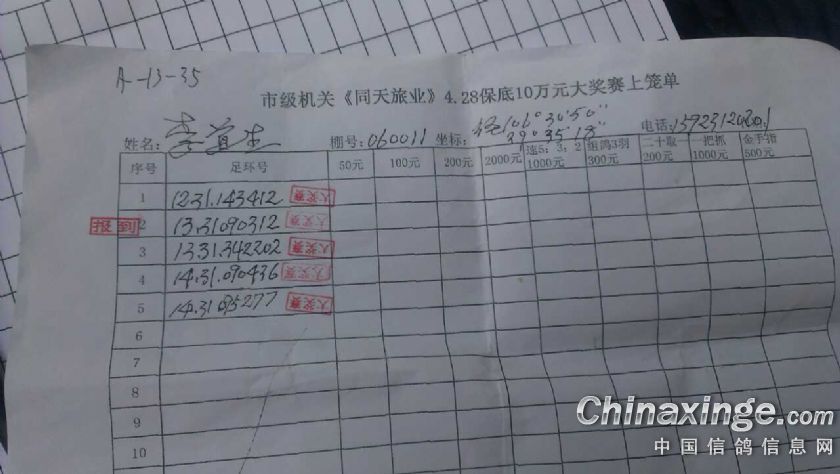 A-13-35
市级机关《同天旅业》4.28保底10万元大奖赛上笼单
姓名: 李宜生 棚号: 060011 坐标: 经106°30′50″ 29°35′18″ 电话:
序号 足环号 50元 100元 200元 2000元 连5;3;2 1000元 组鸽3羽 300元 二十取 200元 一把抓 1000元 金手指 500元
1 1231.143412 大奖赛
报到 2 13.31090312 大奖赛
3 1331.342202 大奖赛
4 14.31.090436 大奖赛
5 14.31 大奖赛
6
7
8
9
10
Chinaxinge.com
中国信鸽信息网